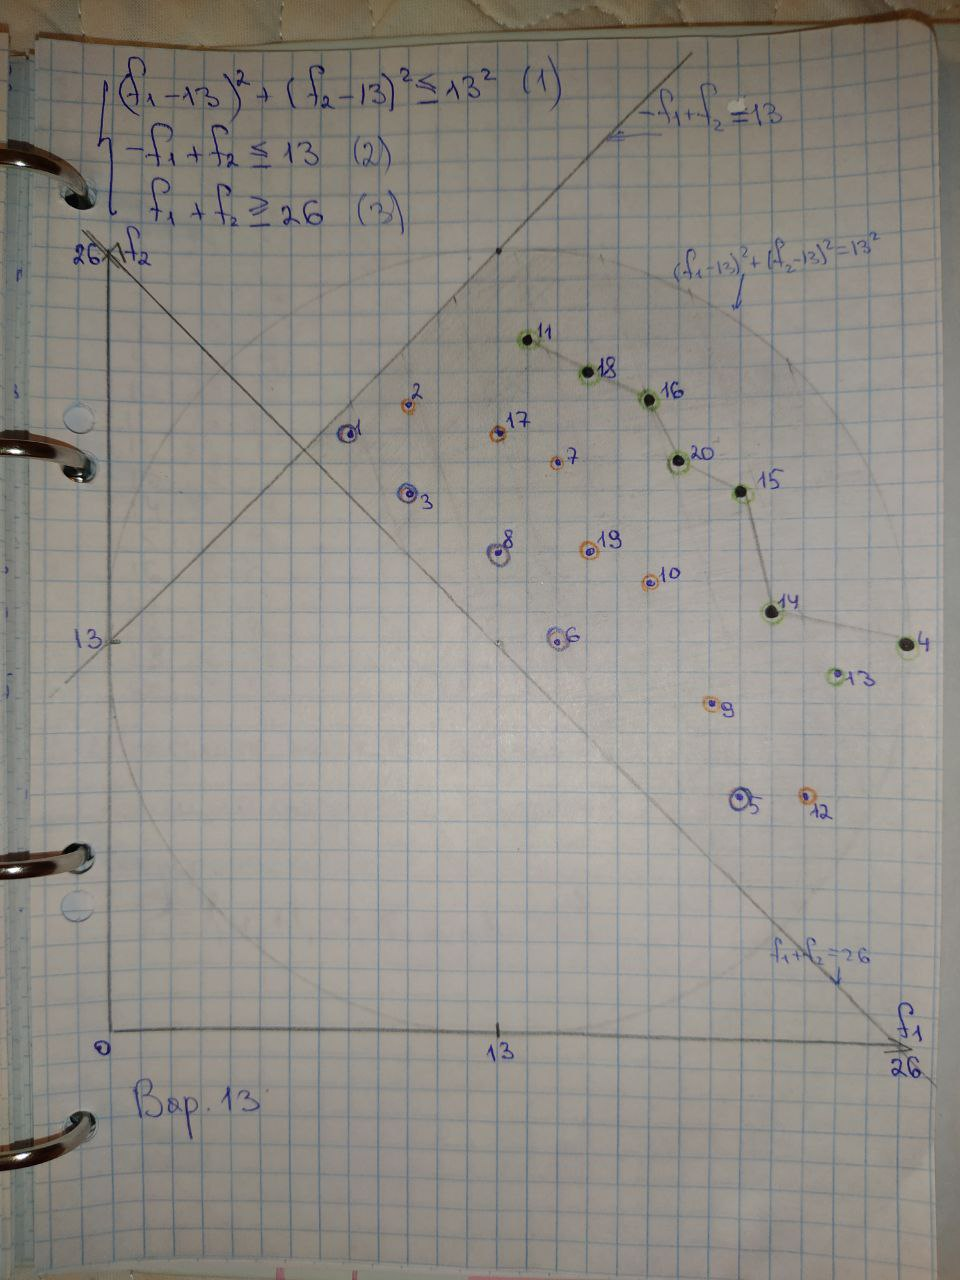 (f₁-13)² + (f₂-13)² ≤ 13² (1)
-f₁ + f₂ ≤ 13 (2)
f₁ + f₂ ≥ 26 (3)
-f₁+f₂=13
26 f₂
(f₁-13)²+(f₂-13)²=13²
11
18
2
16
1
17
20
7
15
3
8
19
10
14
13
6
4
13
9
5
12
f₁+f₂=26
f₁
0
13
26
Вар. 13